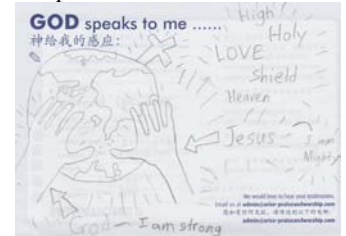 GOD speaks to me ......
神给我的感应:
High!
Holy
LOVE
Shield
Heaven
Jesus - I am
Mighty
We would love to hear your testimonies.
Email us at admin@arise-praiseandworship.com
admin@arise-praiseandworship.com
God - I am strong